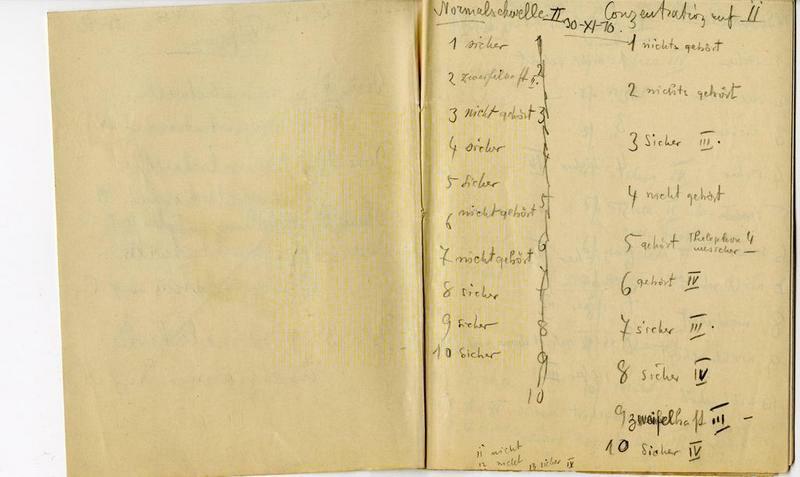 Normalschwelle II
30-XI-10.
1 sicher
2 zweifelhaft II.
3 nicht gehört
4 sicher
5 sicher
6 nicht gehört
7 nicht gehört
8 sicher
9 sicher
10 sicher
1
2
3
4
5
6
7
8
9
10
11 nicht
12 nicht 13 sicher IV
Conzentration auf II
1 nichts gehört
2 nichts gehört
3 Sicher III.
4 nicht gehört
5 gehört Thelephone 4
unsicher —
6 gehört IV
7 sicher III.
8 sicher IV
9 zweifelhaft III —
10 Sicher IV